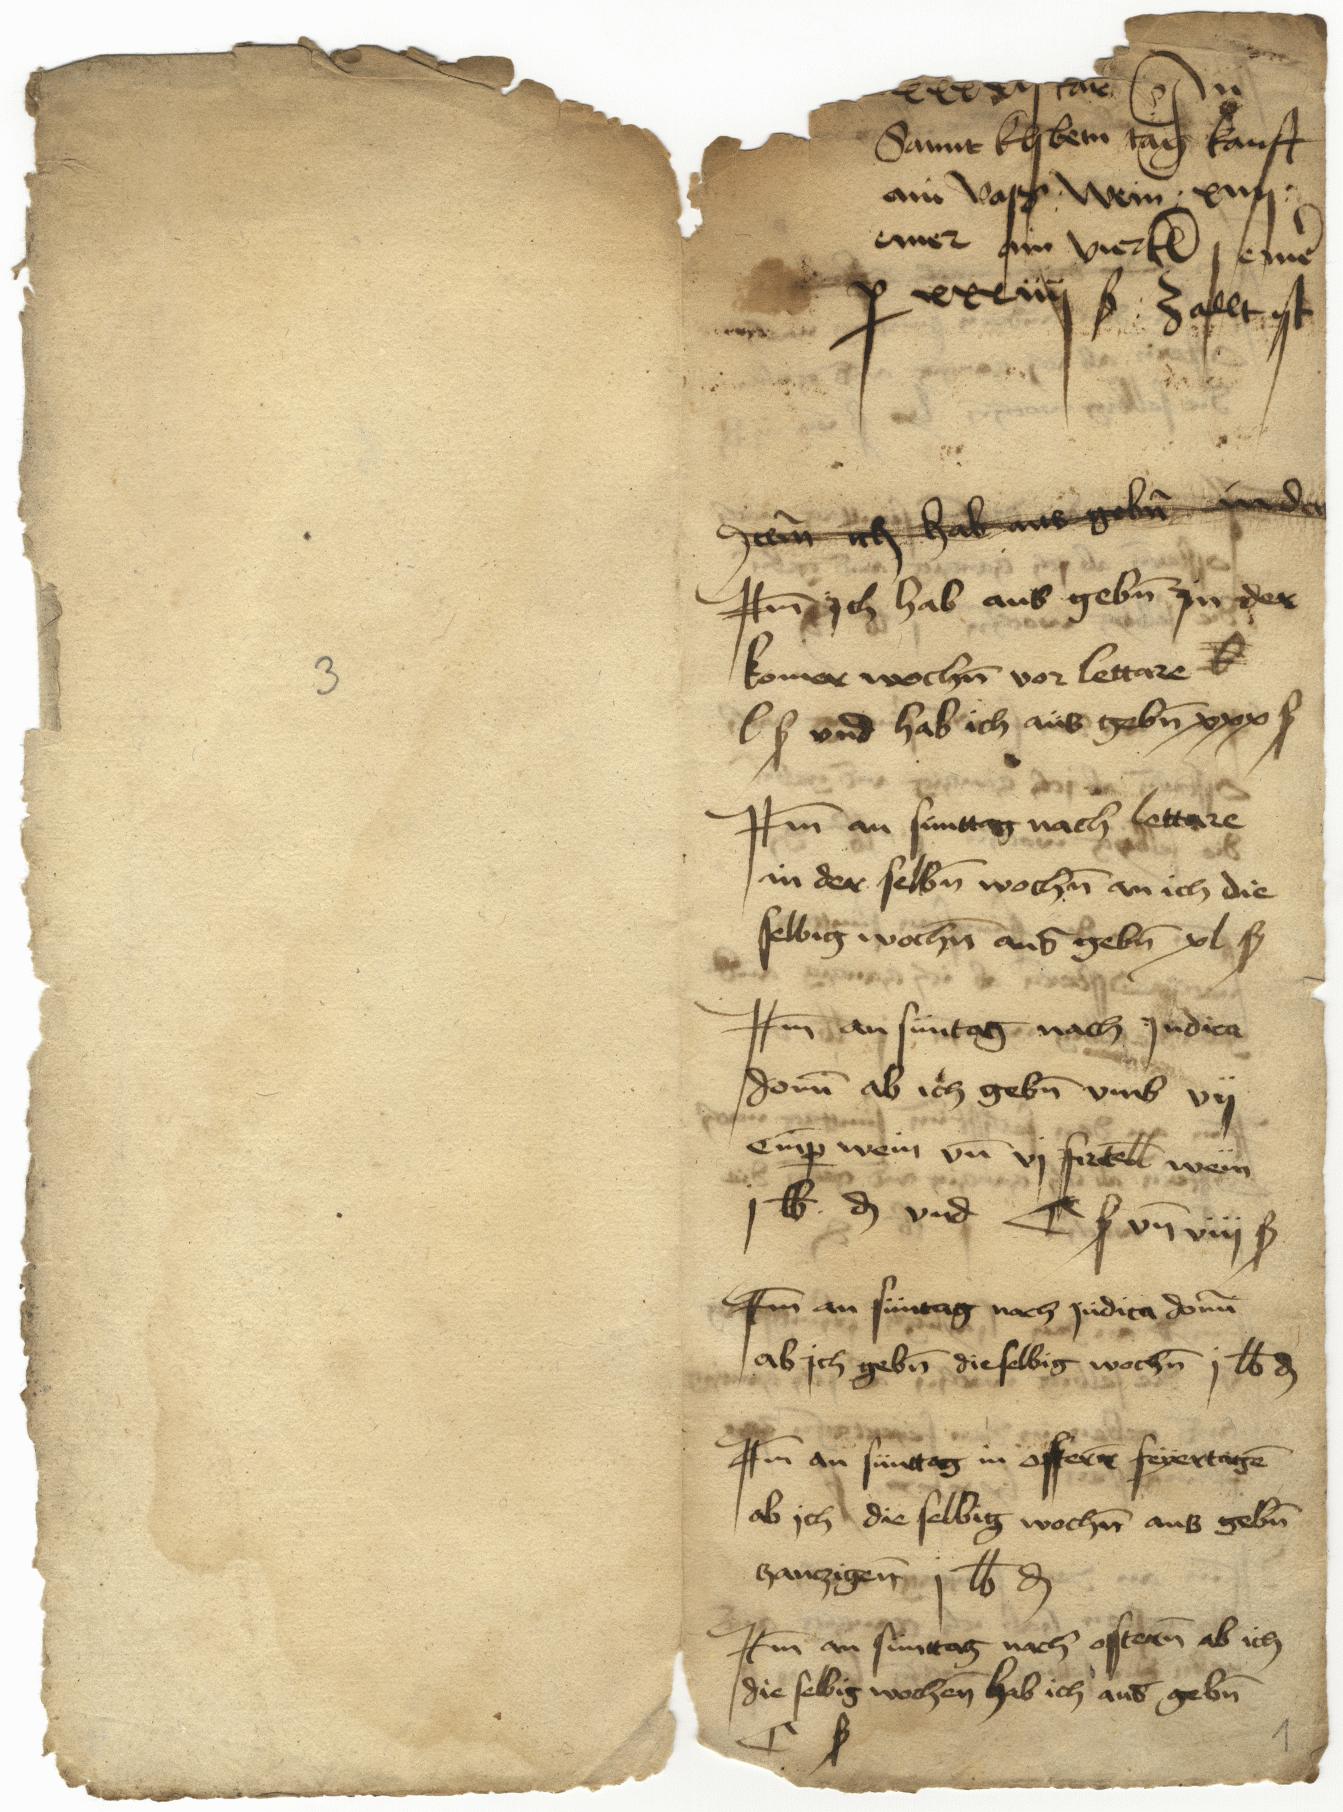 3
Sannt tag kauft
ain vasz wein xiiij
emer ain viertl j emer
p xxxiiij ß zallt ist
Item ich hab aus gebn̄ in der
Itm̄ ich hab aus gebn̄ in der
komer wochn̄ vor lettare
l ß vnd hab ich aus gebn̄ xxx ß
Itm̄ an sunttag nach lettare
in der selbn̄ wochn̄ an ich die
selbig wochn̄ aus gebn̄ xl ß
Itm̄ an suntag nach Judica
dom̄ ab ich gebn̄ vmb vij
wein vn̄ vj firtell wein
j lb ₰ vnd C ß vn̄ viij ß
Itm̄ an suntag nach judica dom̄
ab ich gebn̄ die selbig wochn̄ j lb ₰
Itm̄ an sunttag in ostern̄ feyertagē
ab ich die selbig wochn̄ aus gebn̄
j lb ₰
Itm̄ an sunttag nach ostern̄ ab ich
die selbig wochen̄ hab ich aus gebn̄
C ß
1